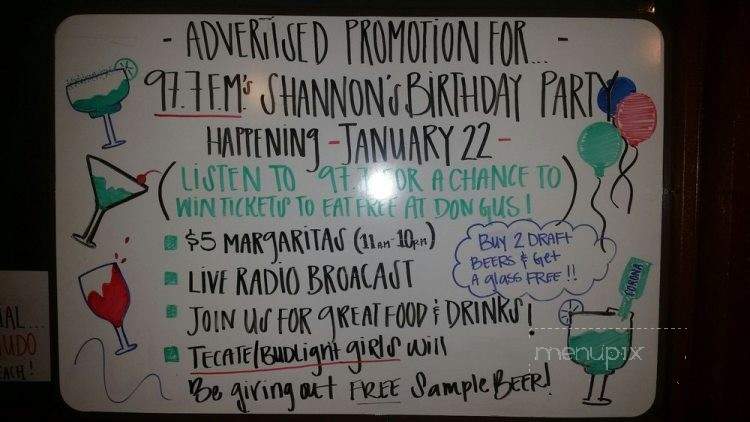 - ADVERTISED PROMOTION FOR... -
97.7 F.M'S SHANNON'S BIRTHDAY PARTY
HAPPENING - JANUARY 22 -
(LISTEN TO 97.7 FOR A CHANCE TO
WIN TICKETS TO EAT FREE AT DON GUS!)
$5 MARGARITAS (11AM-10PM)
LIVE RADIO BROACAST
JOIN US FOR GREAT FOOD & DRINKS!
TECATE/BUDLIGHT GIRLS WILL
Be giving out FREE Sample BEER!
BUY 2 DRAFT
BEERS & GET
A glass FREE!!
CORONA
AL...
UDO
EACH!
menupix